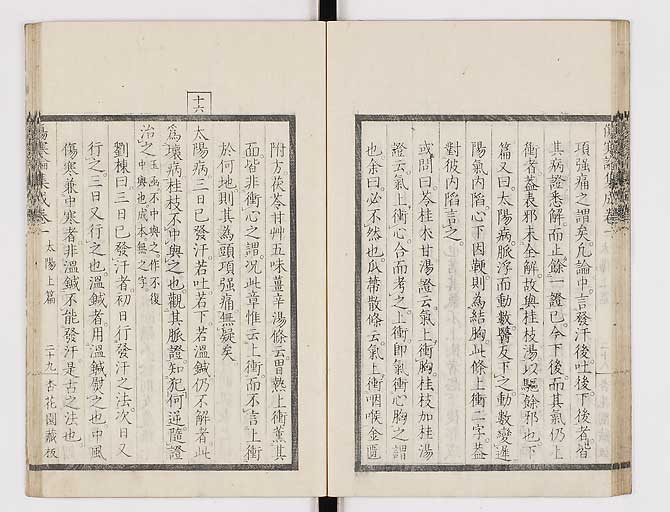 項強痛之謂矣凡論中言發汗後吐後下後者皆
其病證悉解而止餘一證已今下後而其氣仍上
衝者蓋表邪未全解故與桂枝湯以驅餘邪也下
篇又曰太陽病脈浮而動數醫反下之動數變遲
陽氣內陷心下因鞕則為結胸此條上衝二字蓋
對彼內陷言之
或問曰苓桂朮甘湯證云氣上衝胸桂枝加桂湯
證云氣上衝心合而考之上衝即氣衝心胸之謂
也余曰必不然也瓜蒂散條云氣上衝咽喉金匱
附方茯苓甘艸五味薑辛湯條云胃熱上衝薰其
面皆非衝心之謂況此章惟云上衝而不言上衝
於何地則其為頭項強痛無疑矣
十六
太陽病三日已發汗若吐若下若溫鍼仍不解者此
為壞病桂枝不中與之也觀其脈證知犯何逆隨證
治之玉函不中與之作不復
中與也成本無之字
劉棟曰三日已發汗者初日行發汗之法次日又
行之三日又行之也溫鍼者用溫鍼熨之也中風
傷寒兼中寒者非溫鍼不能發汗是古之法也
傷寒論集成卷一 太陽上篇 二十九 杏花園藏板